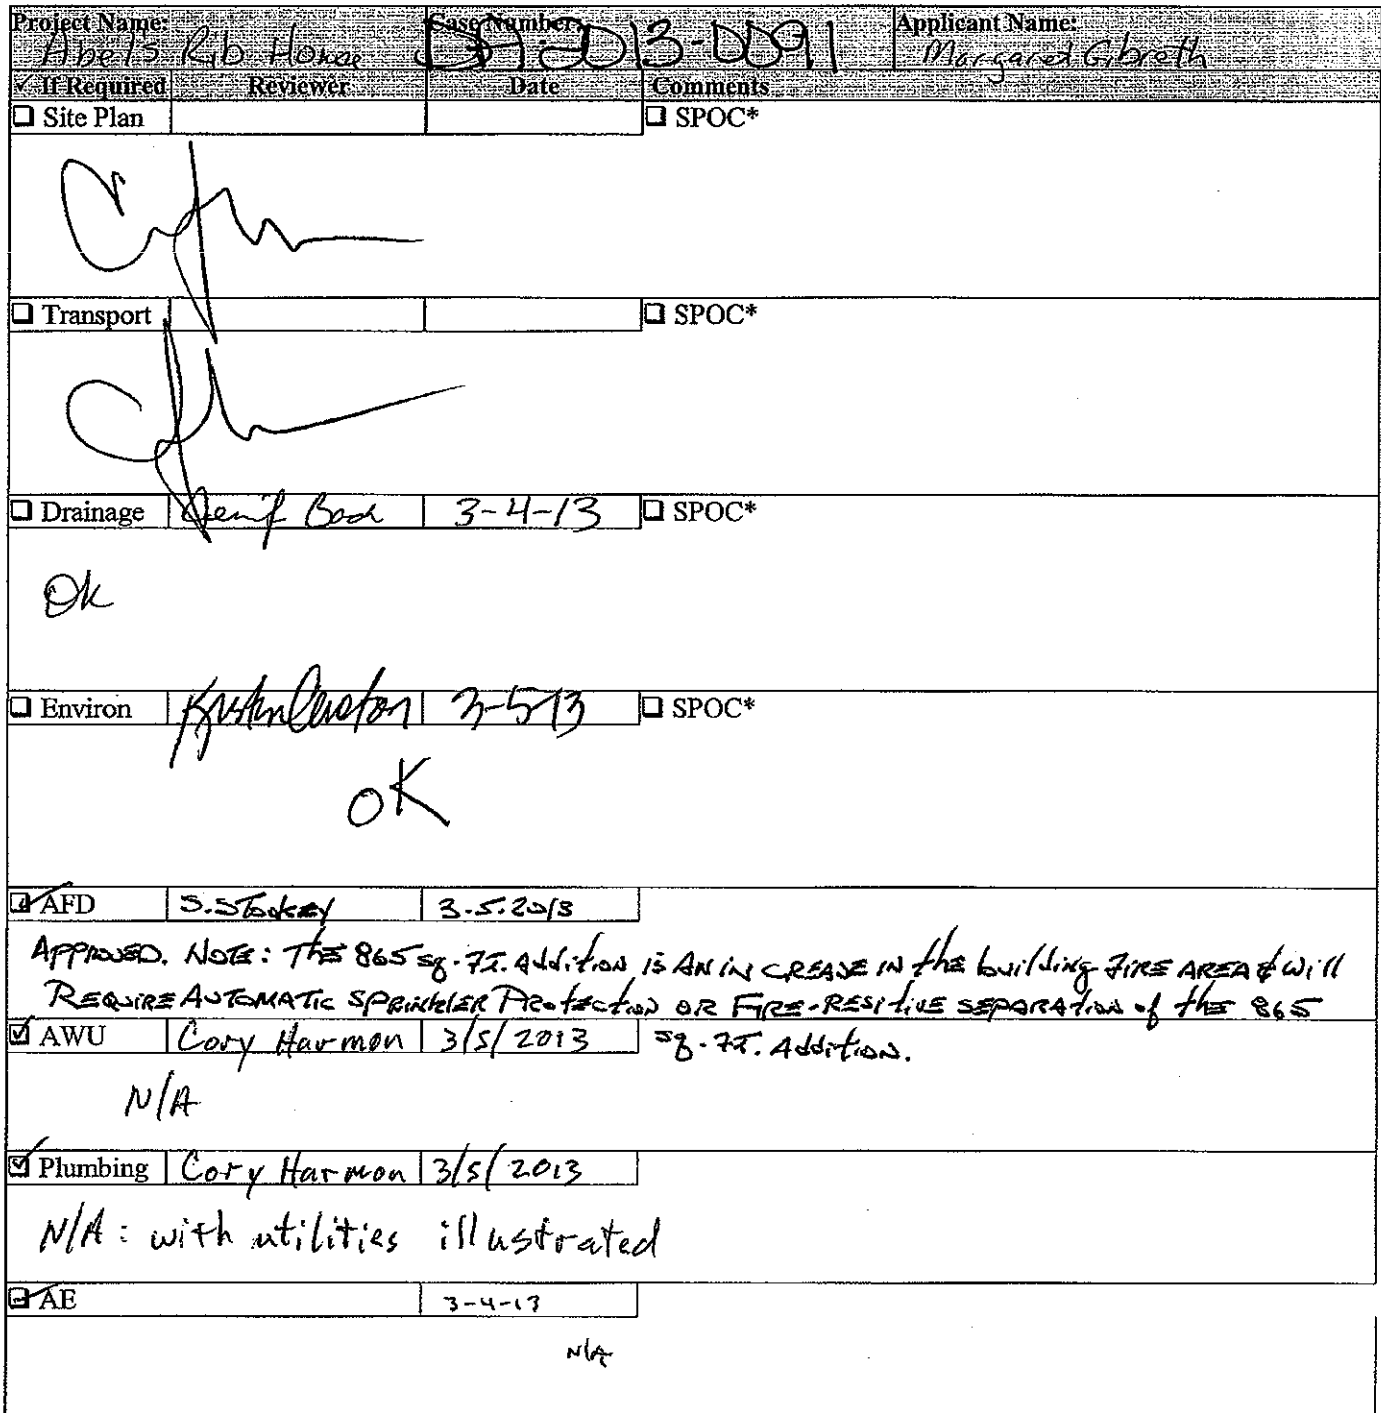 Project Name: Case Number: Applicant Name:
Abel's Rib House DA-2013-0091 Margaret Gibreth
✓ If Required Reviewer Date Comments
☐ Site Plan ☐ SPOC*
☐ Transport ☐ SPOC*
☐ Drainage 3-4-13 ☐ SPOC*
Ok
☐ Environ 3-5-13 ☐ SPOC*
OK
☑ AFD 3.5.2013
APPROVED. NOTE: THE 865 sq. FT. Addition is AN INCREASE IN the building FIRE AREA & Will
REQUIRE AUTOMATIC SPRINKLER PROtection OR FIRE-RESItive SEPARATION of the 865
☑ AWU Cory Harmon 3/5/2013 sq. FT. Addition.
N/A
☑ Plumbing Cory Harmon 3/5/2013
N/A: with utilities illustrated
☑ AE 3-4-13
N/A